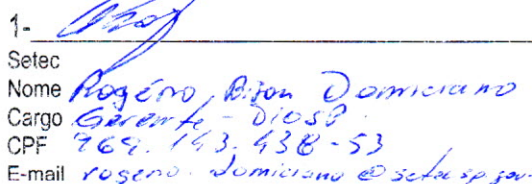 1-
Setec
Nome Rogério Domiciano
Cargo Gerente -
CPF 969.143.438-53
E-mail rogerio.domiciano@setec.sp.gov